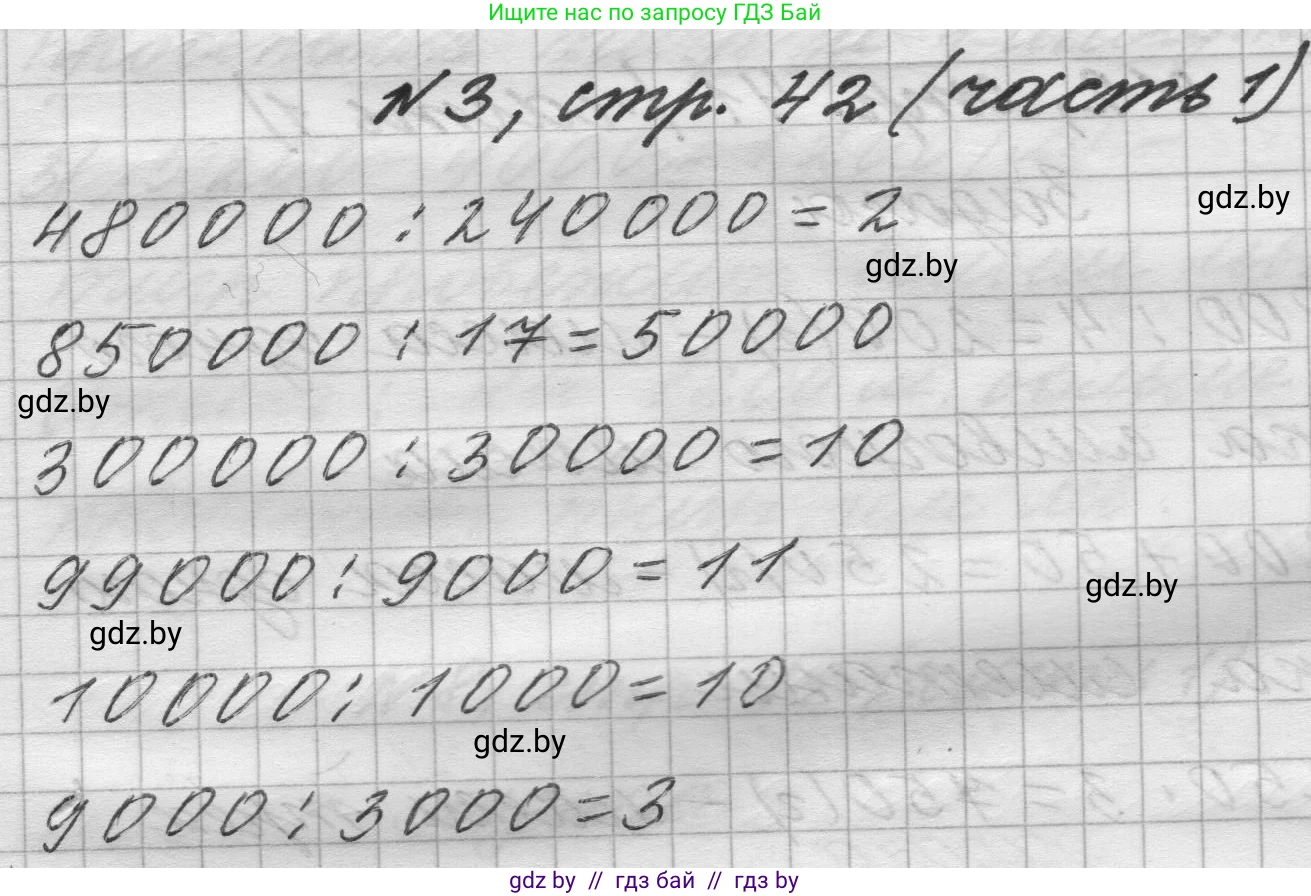 Ищите нас по запросу ГДЗ Бай
№3, стр. 42 (часть 1)
480000 : 240000 = 2
gdz.by
gdz.by
850000 : 17 = 50000
gdz.by
300000 : 30000 = 10
99000 : 9000 = 11
gdz.by
gdz.by
10000 : 1000 = 10
gdz.by
9000 : 3000 = 3
gdz by // гдз бай // гдз by